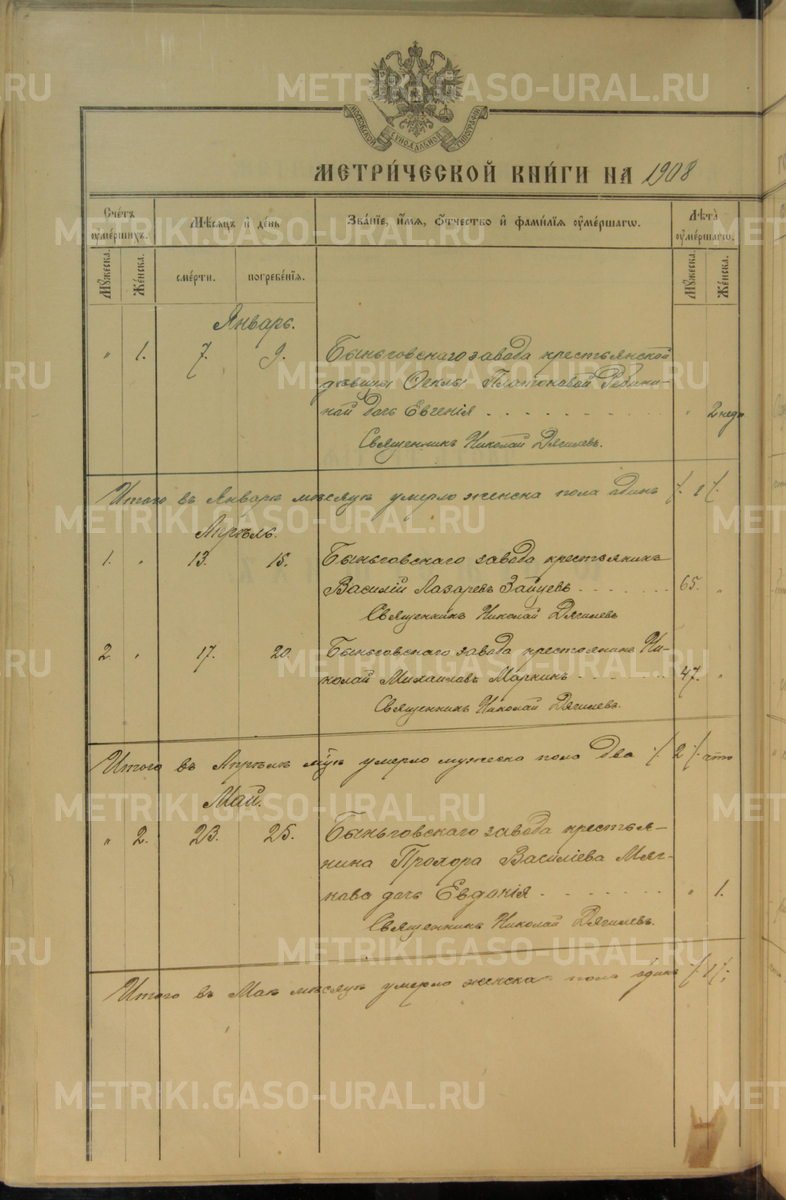 МОСКОВСКОЙ СѴНОДАЛЬНОЙ ТИПОГРАФІИ
МЕТРИ́ЧЕСКОЙ КНИ́ГИ НА 1908
Счетъ ᲂу҆ме́ршихъ.
Мѣ́сяцъ и҆ де́нь
Зва́нїе, и҆́мѧ, ѻ҆́тчество и҆ фами́лїѧ ᲂу҆ме́ршагѡ.
Лѣта̀ ᲂу҆ме́ршагѡ.
Мꙋ́жеска.
Же́нска.
сме́рти.
погребе́нїѧ.
Мꙋ́жеска.
Же́нска.
Январь.
" 1. 7. 9. Быньговскаго завода крестьянской
дѣвицы Ѳеклы Платоновой
ной дочь Евгенія " 2 нед.
Священникъ Николай Дягилевъ.
Итого въ Январѣ мѣсяцѣ умерло женска пола одинъ /. 1 /.
Апрѣль.
1. " 13. 15. Быньговскаго завода крестьянинъ
Василій Лазаревъ Зайцевъ 65. "
Священникъ Николай Дягилевъ
2. " 17. 20. Быньговскаго завода крестьянинъ Ни-
колай Михаиловъ Маркинъ 47. "
Священникъ Николай Дягилевъ.
Итого въ Апрѣлѣ м҃цѣ умерло мужеска пола два ./. 2 ./. что
Май.
" 2. 23. 25. Быньговскаго завода крестья-
нина Прохора Василіева Мяг-
кова дочь Евдокія " 1.
Священникъ Николай Дягилевъ.
Итого въ Маѣ мѣсяцѣ умерло женска пола одинъ ./. 1 /.
METRIKI.GASO-URAL.RU